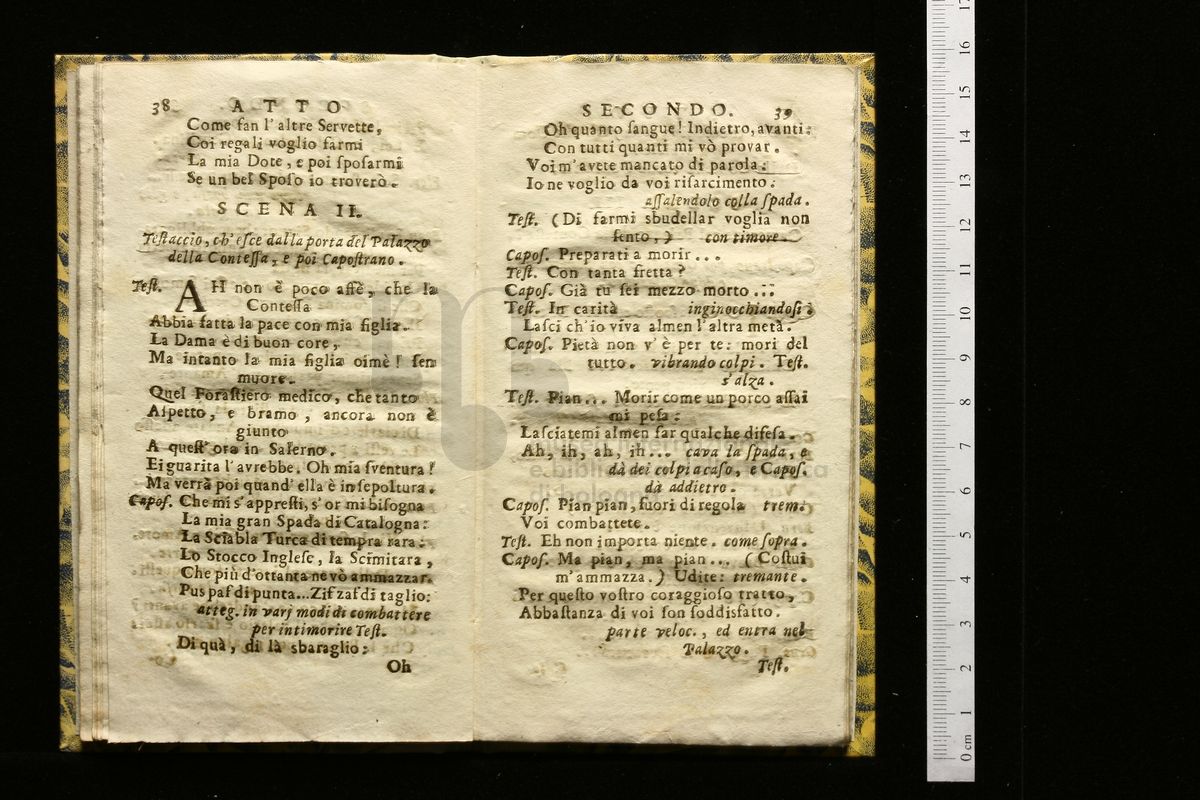 38 ATTO
Come fan l'altre Servette,
Coi regali voglio farmi
La mia Dote, e poi sposarmi
Se un bel Sposo io troverò.
SCENA II.
Testaccio, ch'esce dalla porta del Palazzo
della Contessa, e poi Capostrano.
Test. AH non è poco affè, che la
Contessa
Abbia fatta la pace con mia figlia.
La Dama è di buon core,
Ma intanto la mia figlia oimè! sen
muore.
Quel Forastiero medico, che tanto
Aspetto, e bramo, ancora non è
giunto
A quest'ora in Salerno.
Ei guarita l'avrebbe. Oh mia sventura!
Ma verrà poi quand'ella è in sepoltura.
Capos. Che mi s'appresti, s'or mi bisogna
La mia gran Spada di Catalogna:
La Sciabla Turca di tempra rara:
Lo Stocco Inglese, la Scimitara,
Che più d'ottanta ne vò ammazzar.
Pus paf di punta... Zif zaf di taglio:
atteg. in varj modi di combattere
per intimorire Test.
Di quà, di là sbaraglio:
Oh
SECONDO. 39
Oh quanto sangue! Indietro, avanti:
Con tutti quanti mi vò provar.
Voi m'avete mancato di parola:
Io ne voglio da voi risarcimento:
assalendolo colla spada.
Test. (Di farmi sbudellar voglia non
sento,) con timore.
Capos. Preparati a morir...
Test. Con tanta fretta?
Capos. Già tu sei mezzo morto...
Test. In carità inginocchiandosi
Lasci ch'io viva almen l'altra metà.
Capos. Pietà non v'è per te: mori del
tutto. vibrando colpi. Test.
s'alza.
Test. Pian... Morir come un porco assai
mi pesa:
Lasciatemi almen far qualche difesa.
Ah, ih, ah, ih... cava la spada, e
dà dei colpi a caso, e Capos.
dà addietro.
Capos. Pian pian, fuori di regola trem.
Voi combattete.
Test. Eh non importa niente. come sopra.
Capos. Ma pian, ma pian... (Costui
m'ammazza.) Udite: tremante.
Per questo vostro coraggioso tratto,
Abbastanza di voi son soddisfatto.
parte veloc., ed entra nel
Palazzo.
Test.
0 cm 1 2 3 4 5 6 7 8 9 10 11 12 13 14 15 16 17